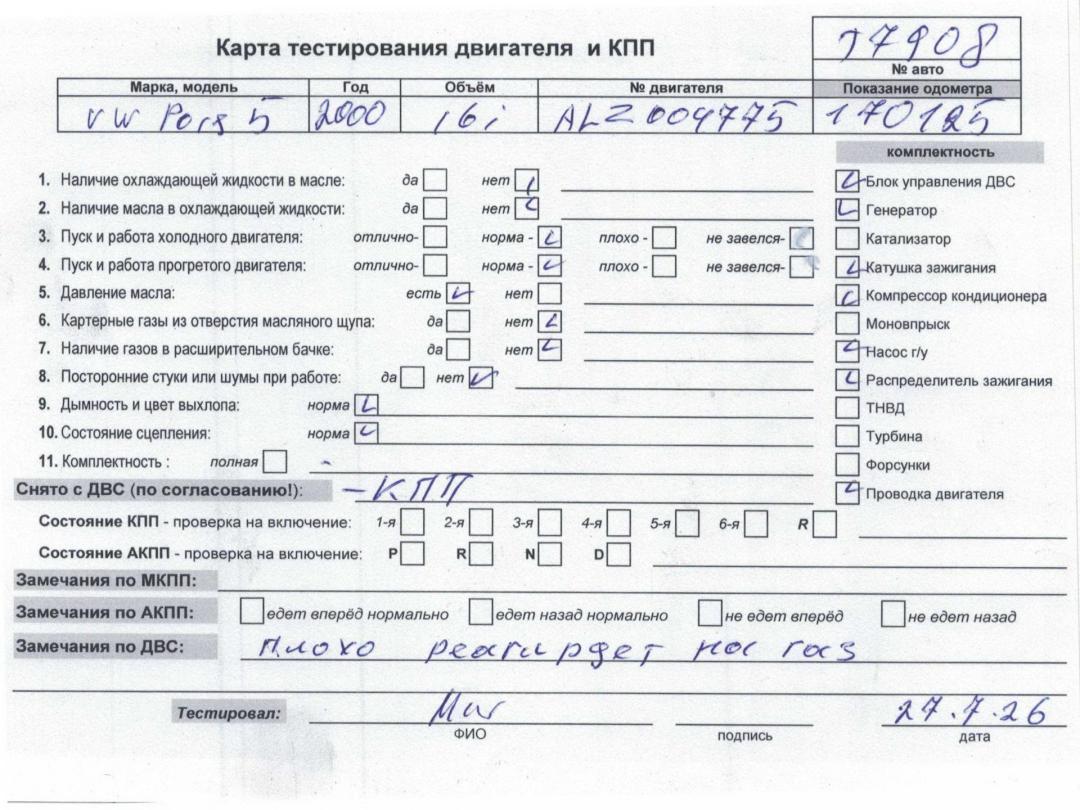 Карта тестирования двигателя и КПП
№ авто
Марка, модель Год Объём № двигателя Показание одометра
VW 5 2000 16i ALZ004775 170125
комплектность
1. Наличие охлаждающей жидкости в масле: да нет Блок управления ДВС
2. Наличие масла в охлаждающей жидкости: да нет Генератор
3. Пуск и работа холодного двигателя: отлично- норма - плохо - не завелся- Катализатор
4. Пуск и работа прогретого двигателя: отлично- норма - плохо - не завелся- Катушка зажигания
5. Давление масла: есть нет Компрессор кондиционера
6. Картерные газы из отверстия масляного щупа: да нет Моновпрыск
7. Наличие газов в расширительном бачке: да нет Насос г/у
8. Посторонние стуки или шумы при работе: да нет Распределитель зажигания
9. Дымность и цвет выхлопа: норма ТНВД
10. Состояние сцепления: норма Турбина
11. Комплектность : полная Форсунки
Снято с ДВС (по согласованию!): - КПП Проводка двигателя
Состояние КПП - проверка на включение: 1-я 2-я 3-я 4-я 5-я 6-я R
Состояние АКПП - проверка на включение: P R N D
Замечания по МКПП:
Замечания по АКПП: едет вперёд нормально едет назад нормально не едет вперёд не едет назад
Замечания по ДВС: плохо реагирует на газ
Тестировал: 27.7.26
ФИО подпись дата